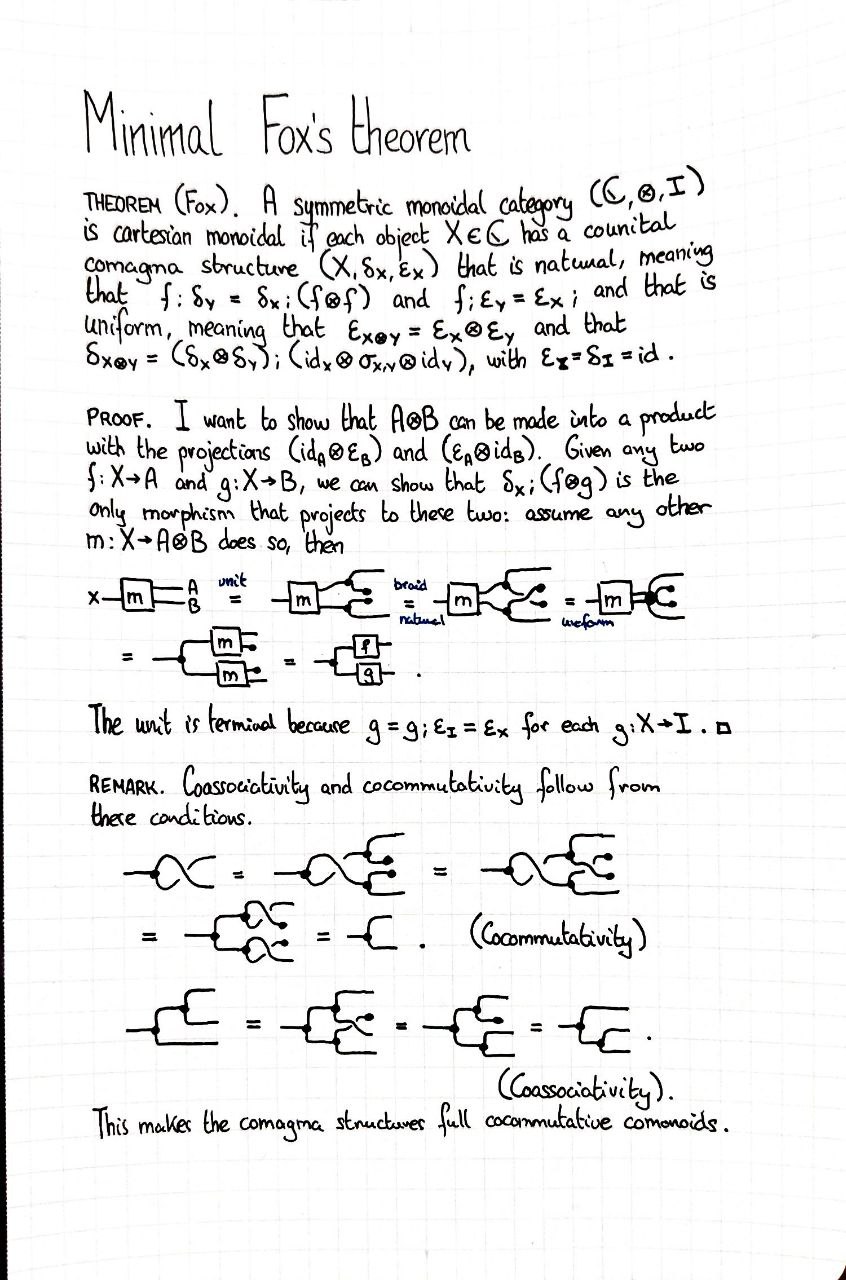 Minimal Fox's theorem
THEOREM (Fox). A symmetric monoidal category (ℂ,⊗,I)
is cartesian monoidal if each object X∈ℂ has a counital
comagma structure (X,δx,εx) that is natural, meaning
that f;δy = δx;(f⊗f) and f;εy = εx; and that is
uniform, meaning that εx⊗y = εx⊗εy and that
δx⊗y = (δx⊗δy);(idx⊗σx,y⊗idy), with εI=δI=id.
PROOF. I want to show that A⊗B can be made into a product
with the projections (idA⊗εB) and (εA⊗idB). Given any two
f:X→A and g:X→B, we can show that δx;(f⊗g) is the
only morphism that projects to these two: assume any other
m:X→A⊗B does so, then
X m A B unit = m braid = natural m = uniform m
= m m = f g .
The unit is terminal because g = g;εI = εx for each g:X→I. □
REMARK. Coassociativity and cocommutativity follow from
these conditions.
= =
= = . (Cocommutativity)
= = = .
(Coassociativity).
This makes the comagma structures full cocommutative comonoids.